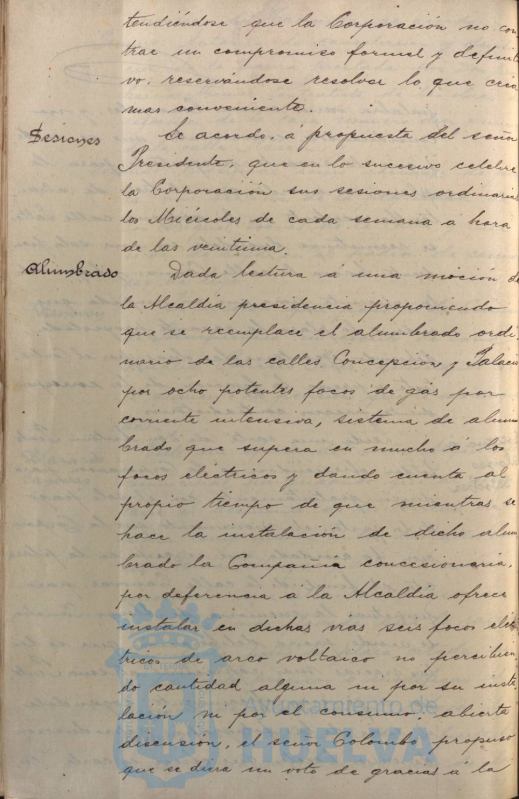 tendiéndose que la Corporación no con
trae un compromiso formal y definiti
vo, reservándose resolver lo que crea
mas conveniente.
Sesiones
Se acordo, á propuesta del señor
Presidente, que en lo sucesivo celebre
la Corporación sus sesiones ordinarias
los Miércoles de cada semana a hora
de las veintiuna.
Alumbrado
Dada lectura á una moción de
la Alcaldia presidencia proponiendo
que se reemplace el alumbrado ordi
nario de las calles Concepcion y Palacio
por ocho potentes focos de gás por
corriente intensiva, sistema de alum
brado que supera en mucho á los
focos eléctricos y dando cuenta al
propio tiempo de que mientras se
hace la instalación de dicho alum
brado la Compañia concesionaria,
por deferencia á la Alcaldia ofrece
instalar en dichas vias seis focos eléc
tricos de arco voltaico no percibien
do cantidad alguna ni por su insta
lación ni por el consumo; abierta
discusión, el señor Colombo propuso
que se diera un voto de gracias á la
Ayuntamiento de
HUELVA